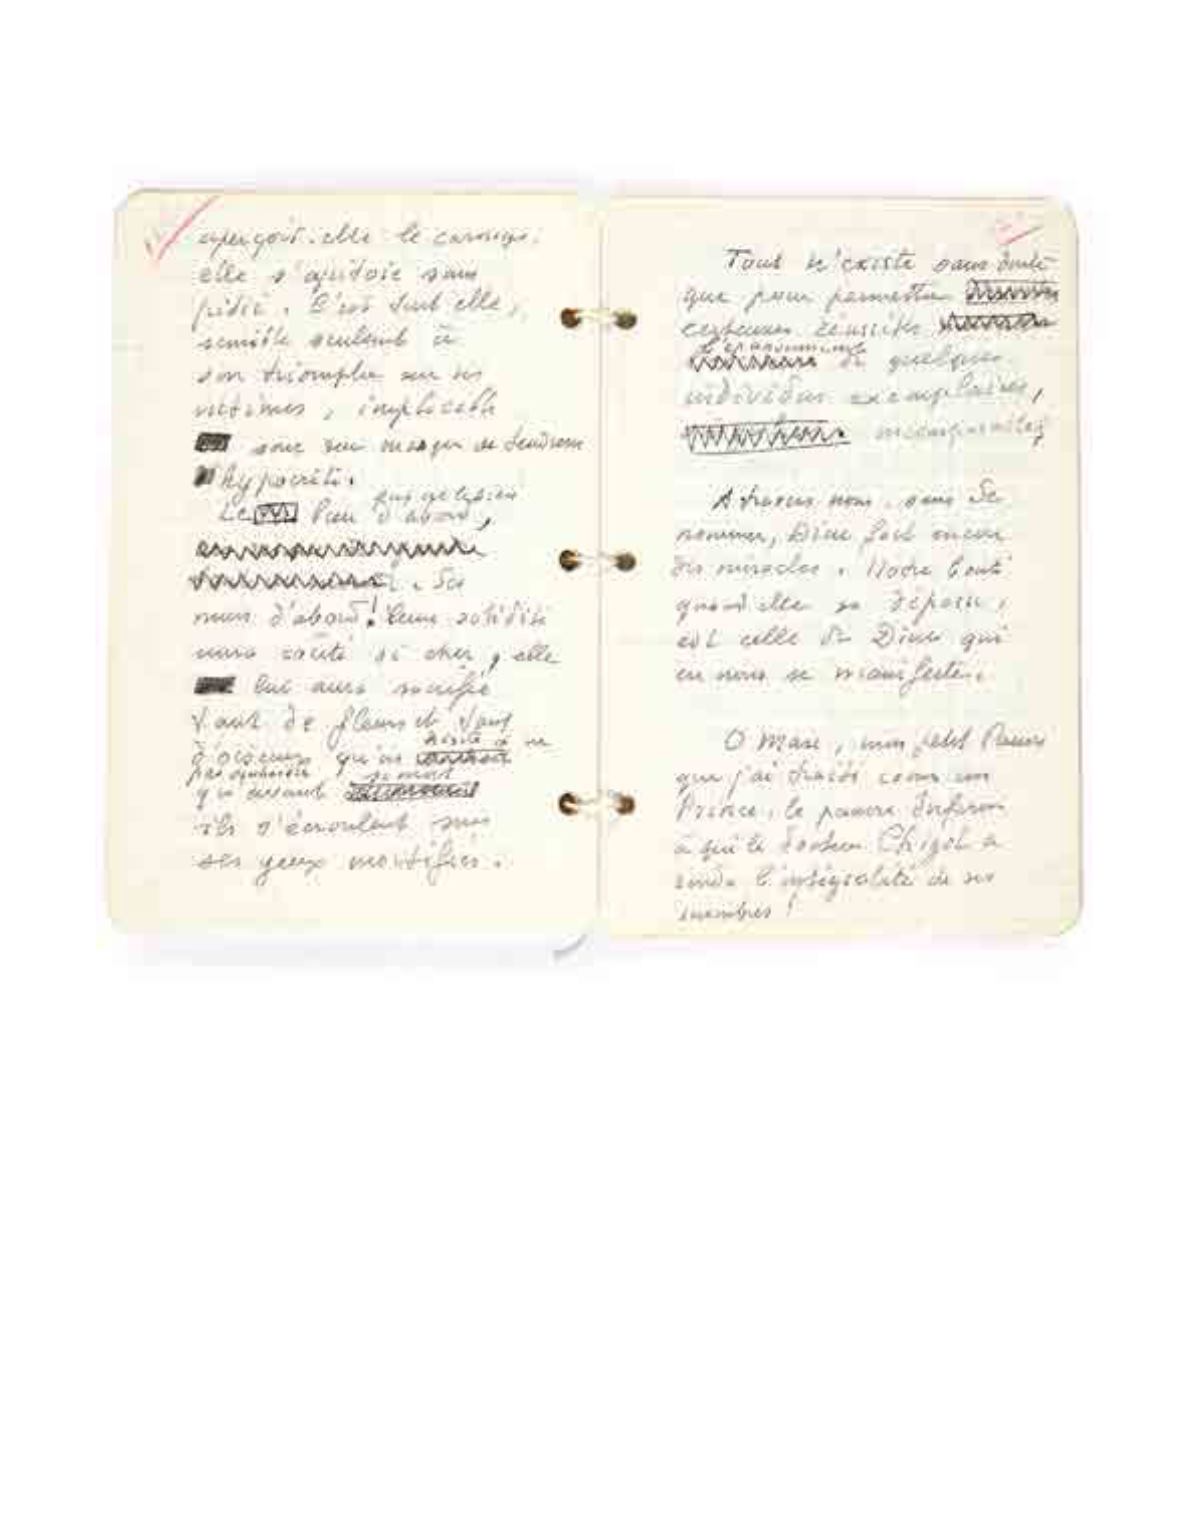 aperçoit-elle le carnage.
elle s'apitoie sans
pitié. C'est tout elle,
sensible seulement à
son triomphe sur ses
victimes, implacable
sous son masque de tendresse
hypocrite.
Le beau d'abord,
. Ses
murs d'abord! Leur solidité
aura coûté si cher, elle
lui aura sacrifié
tant de fleurs et tant
d'oiseaux qu'on
pas
qui devant
ils s'écroulent sous
ses yeux mortifiés.
Tout n'existe sans doute
que pour permettre
certaines réussites
l'épanouissement
de quelques
individus exemplaires,
incomparables,
A travers nous, sans se
nommer, Dieu fait encore
des miracles. Notre bonté
quand elle se dépasse,
est celle de Dieu qui
en nous se manifeste.
O Marc, mon petit Pauvre
que j'ai traité comme un
Prince, le pauvre Infirme
à qui le docteur a
rendu l'intégralité de ses
membres!